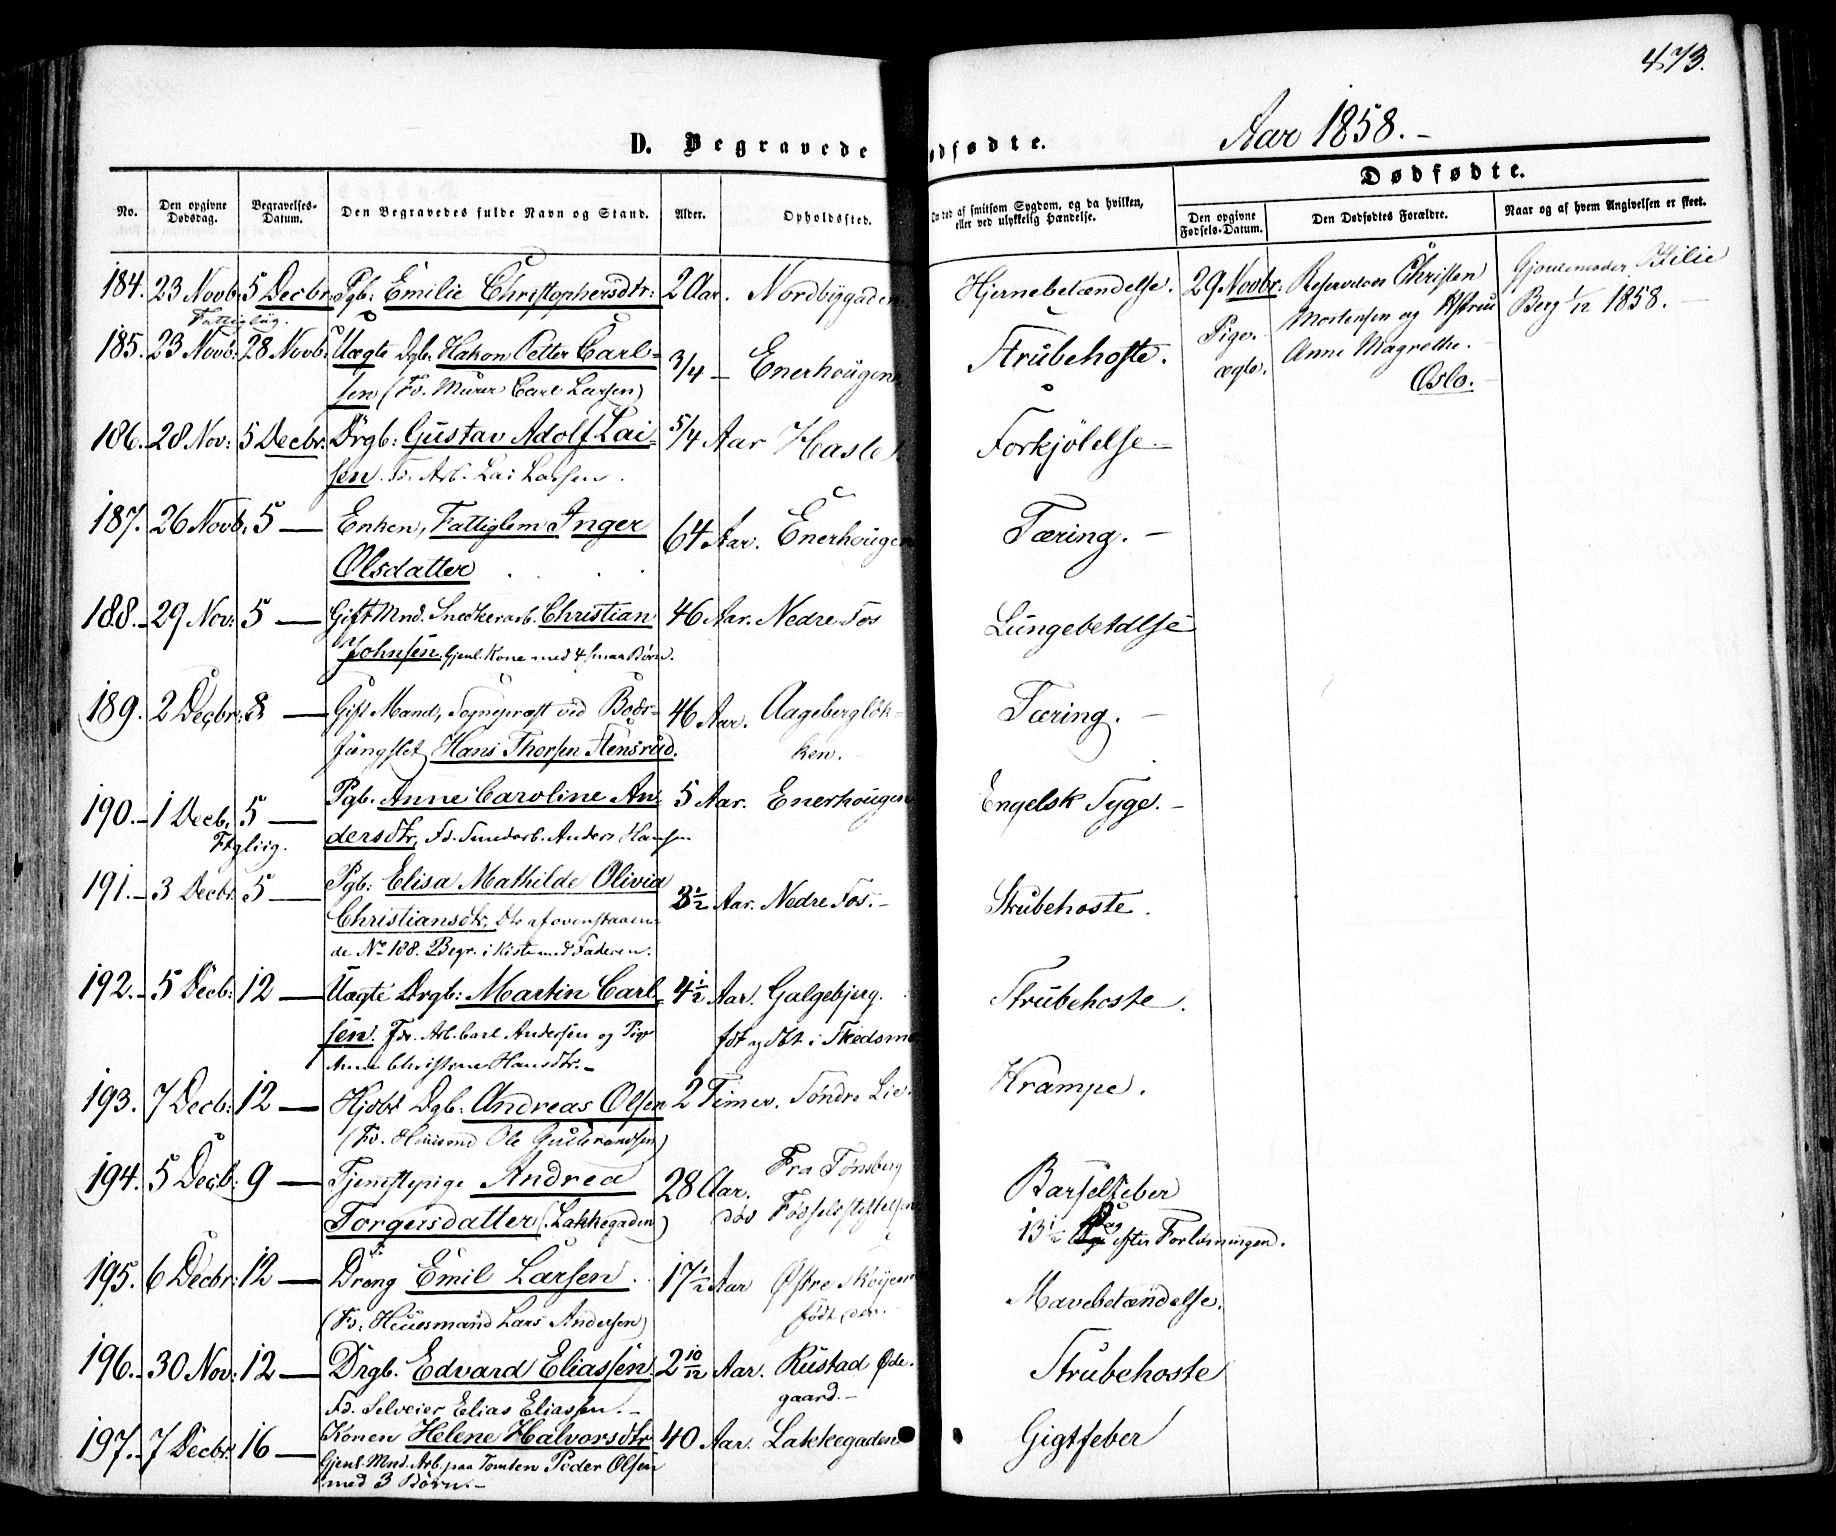 473.
Aar 1858. -
D. Begravede
ødfødte.
Dødfødte.
No.
Den opgivne Dødsdag.
Begravelses-Datum.
Den Begravedes fulde Navn og Stand.
Alder.
Opholdssted.
ved af smitsom Sygdom, og da hvilken,
eller ved ulykkelig Hændelse.
Den opgivne Fødsels-Datum.
Den Dødfødtes Forældre.
Naar og af hvem Angivelsen er skeet.
184. 23 Novb. 5 Decbr. Pgb: Emilie Christophersdtr: 2 Aar. Nordbygaden Hjernebetændelse. 29 Novbr: Christen Gjordemoder Berg 1/12 1858.
Pige. ægte. Mortensen og Anne Magrethe. Oslo.
185. 23 Novb. 28 Novb. Uægte Dgb. Hakon Petter Carl- 3/4 - Enerhougen Strubehoste.
sen (Fd. Murer Carl Larsen)
186. 28 Nov: 5 Decbr. Drgb: Gustav Adolf Lai- 5/4 Aar Hasle Forkjølelse. -
sen. Fd. Arb. Lai Larsen.
187. 26 Novb. 5 — Enken, Fattiglem Inger 64 Aar. Enerhougen Tæring. -
Olsdatter
188. - 29 Nov: 5 — Gift Mnd. Snedkerarb. Christian 46 Aar. Nedre Fos Lungebetdlse
Johnsen. Gjenl. Kone med 4 smaa Børn.
189. 2 Decbr: 8 — Gift Mand, Sognepræst ved Bods- 46 Aar. Aagebergløk- Tæring. -
fængslet Hans Thorsen Stensrud. ken. -
190. - 1 Decb. 5 — Pgb. Anne Caroline An- 5 Aar. Enerhougen Engelsk Syge. -
dersdtr, Fd. Smedarb. Anders Hansen
191. - 3 Decbr. 5 — Pgb: Elisa Mathilde Olivia 3 1/2 Aar. Nedre Fos. - Strubehoste.
Christiansdtr, Dtr af ovenstaaen-
de No 188. Begr. i Kiste med Faderen.
192. - 5 Decb: 12 — Uægte Drgb: Martin Carl- 4 1/2 Aar. Galgebjerg. Strubehoste.
sen. Fd. Arb. Carl Andersen og Pige fdt og dbt i Skedsmo
Anne Christine Hansdtr. -
193. 7 Decb: 12 — Hjdbt Dgb: Andreas Olsen 2 Timer. Søndre Lie. Krampe.
(Fd. Huusmd Ole Gulbrandsen)
194. 5 Decb: 9 — Tjenestepige Andrea 28 Aar. Fra Tønsberg Barselfeber
Torgersdatter (Lakkegaden) død Fødselsstiftelsen 13 1/2 Dag efter Forløsningen.
195. 6 Decbr: 12 — Dreng Emil Larsen. 17 1/2 Aar Østre Skøyen Mavebetændelse.
(Fd: Huusmand Lars Andersen) født der.
196. - 30 Nov: 12 — Drgb. Edvard Eliassen. 2 10/12 Aar. Rustad Øde- Strubehoste
Fd. Selveier Elias Eliassen. - gaard. -
197. - 7 Decbr. 16 — Konen Helene Halvorsdtr 40 Aar. Lakkegaden Gigtfeber
Gjenl. Mnd. Arb. paa Tomten Peder Olsen
med 3 Børn. -